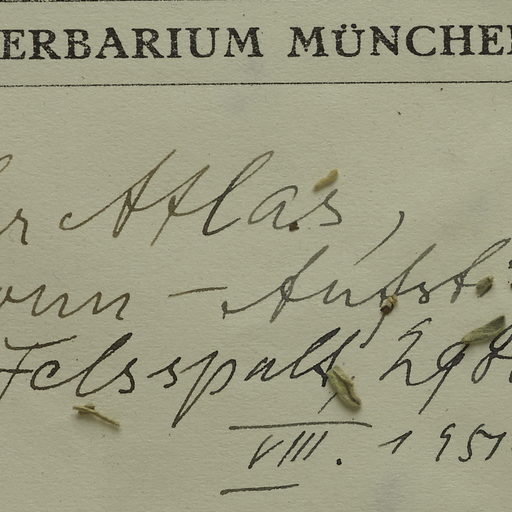 ERBARIUM MÜNCHE
r Atlas,
onn - Aufst
Felsspalt, 29
VIII. 1951